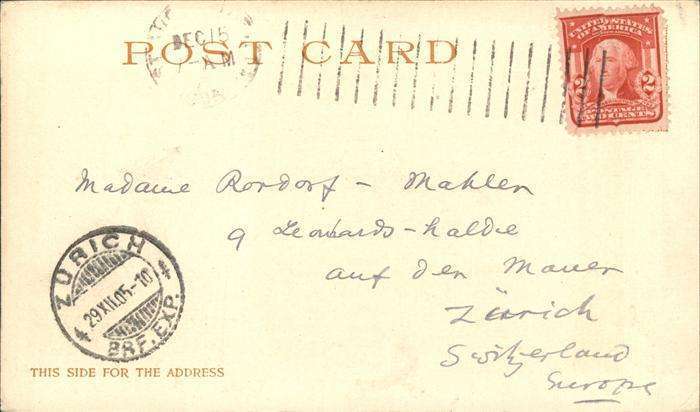 POST CARD
DEC 15
AM
UNITED STATES OF AMERICA
2 2
POSTAGE
TWO CENTS
Madame Rordorf – Mahler
9 Leonards-halde
auf der Mauer
Zürich
Switzerland
Europe
ZÜRICH
29XII.05-10
BRF. EXP.
THIS SIDE FOR THE ADDRESS